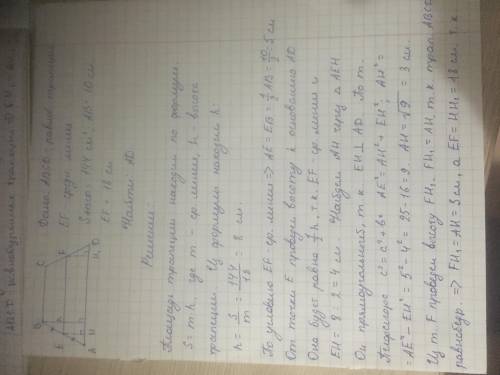 Дано: ABCD - равноб. трапеция
EF - средн. линия
S = 144 см², AB = 10 см
EF = 18 см
Найти: AD
B
C
E
F
A
H
H₁
D
Решение:
Площадь трапеции находим по формуле
S = m·h, где m - ср. линия, h - высота
трапеции. Из формулы находим h:
h = S/m = 144/18 = 8 см.
По условию EF ср. линия => AE = EB = 1/2 AB = 10/2 = 5 см
От точки E проведем высоту к основанию AD
Она будет равна 1/2 h, т.к. EF ср. линия и
EH = 8 : 2 = 4 см. Найдем AH через Δ AEH
Он прямоугольный, т.к. EH ⊥ AD. По т.
Пифагора c² = a² + b² AE² = AH² + EH²; AH² =
= AE² - EH² = 5² - 4² = 25 - 16 = 9. AH = √9 = 3 см.
Из т. F проведем высоту FH₁. FH₁ = AH, т.к. трап. ABCD
равнобедр. => FH₁ = AH = 3 см, а EF = HH₁ = 18 см. т.к.